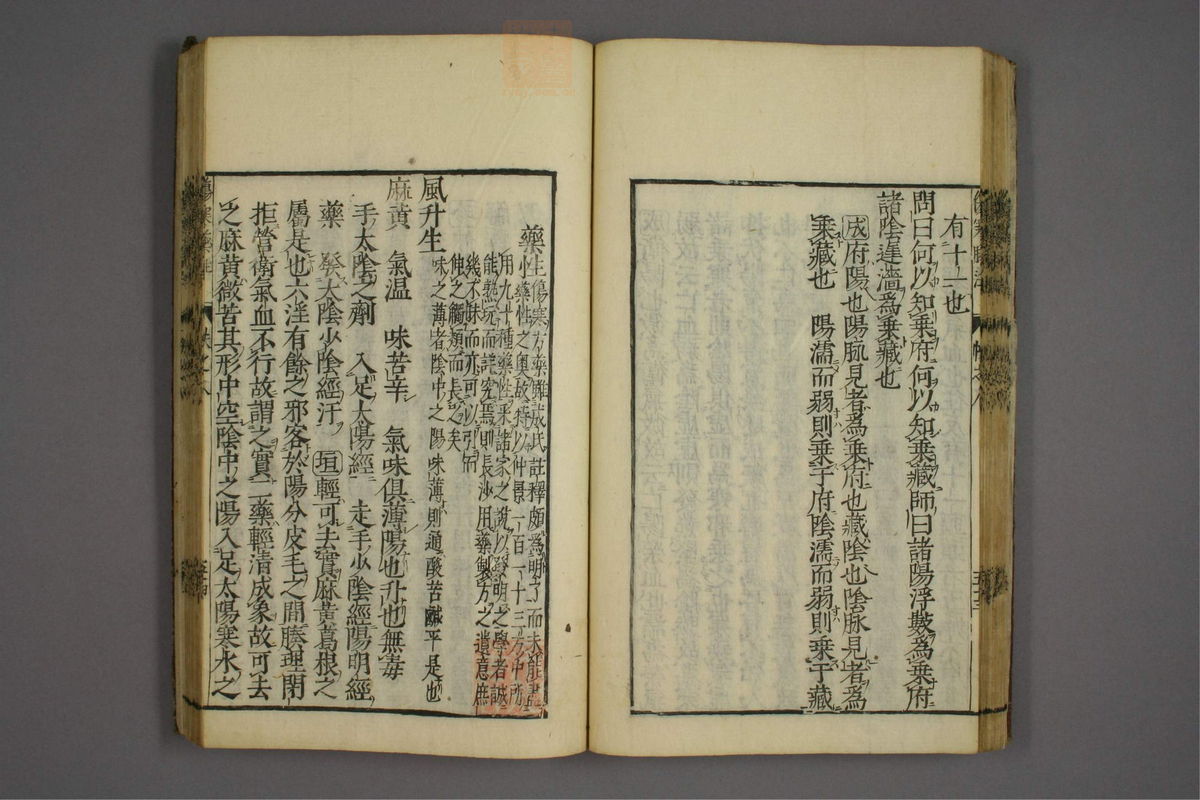 有十一也
問曰何以知乗府何以知乗藏師曰諸陽浮數為乗府
諸陰遲濇為乗藏也
成府陽也陽脉見者為乗府也藏陰也陰脉見者為
乗藏也 陽濡而弱則乗于府陰濡而弱則乗于藏
藥性
傷寒方藥雖成氏註釋頗為明了而未能盡
藥性之奥故特以仲景一百一十三方中所
用九十種藥性采諸家之説以發明之學者誠
能熟玩而詳究焉則長沙用藥製方之遺意庶
幾不昧而亦可以引而
伸之觸類而長之矣
風升生
味之薄者陰中之陽味薄則通酸苦鹹平是也
麻黄 氣温 味苦辛 氣味俱薄陽也升也無毒
手太陰之劑 入足太陽經 走手少陰經陽明經
藥 發太陰少陰經汗 垣輕可去實麻黄葛根之
屬是也六淫有餘之邪客於陽分皮毛之間腠理閉
拒營衛氣血不行故謂之實二藥輕清成象故可去
之麻黄微苦其形中空陰中之陽入足太陽寒水之